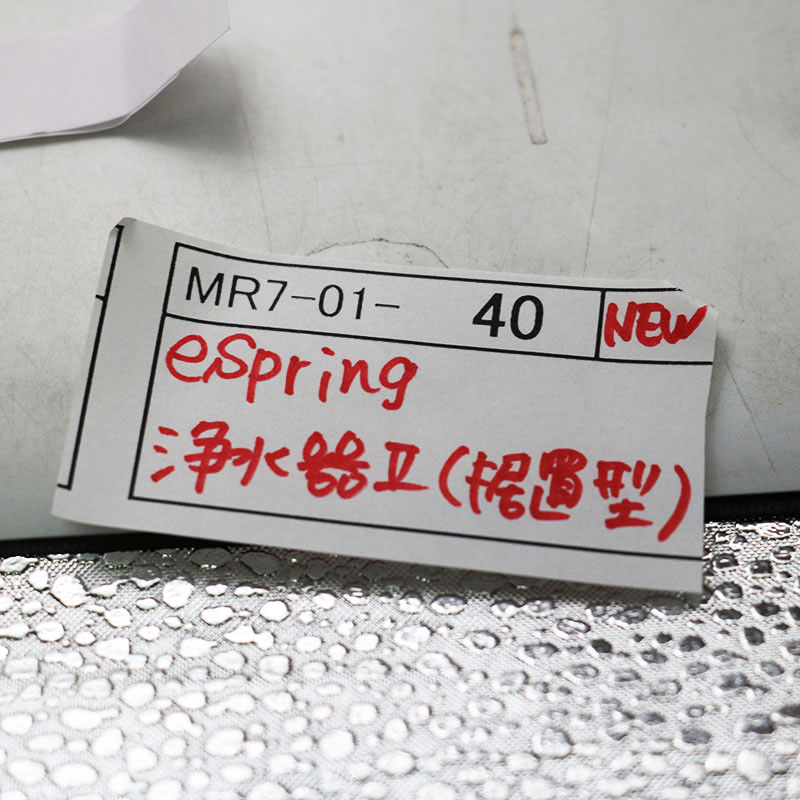 MR7-01- 40 NEW
eSpring
浄水器Ⅱ(据置型)